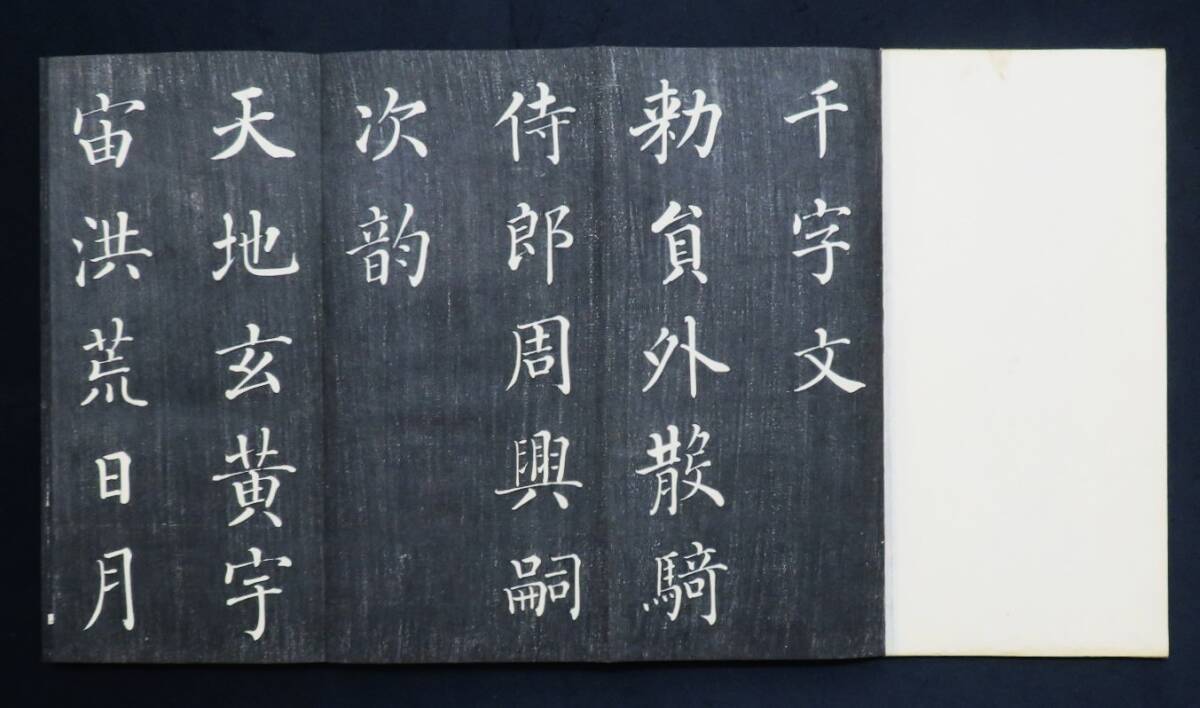 千字文
勑員外散騎
侍郎周興嗣
次韵
天地玄黃宇
宙洪荒日月